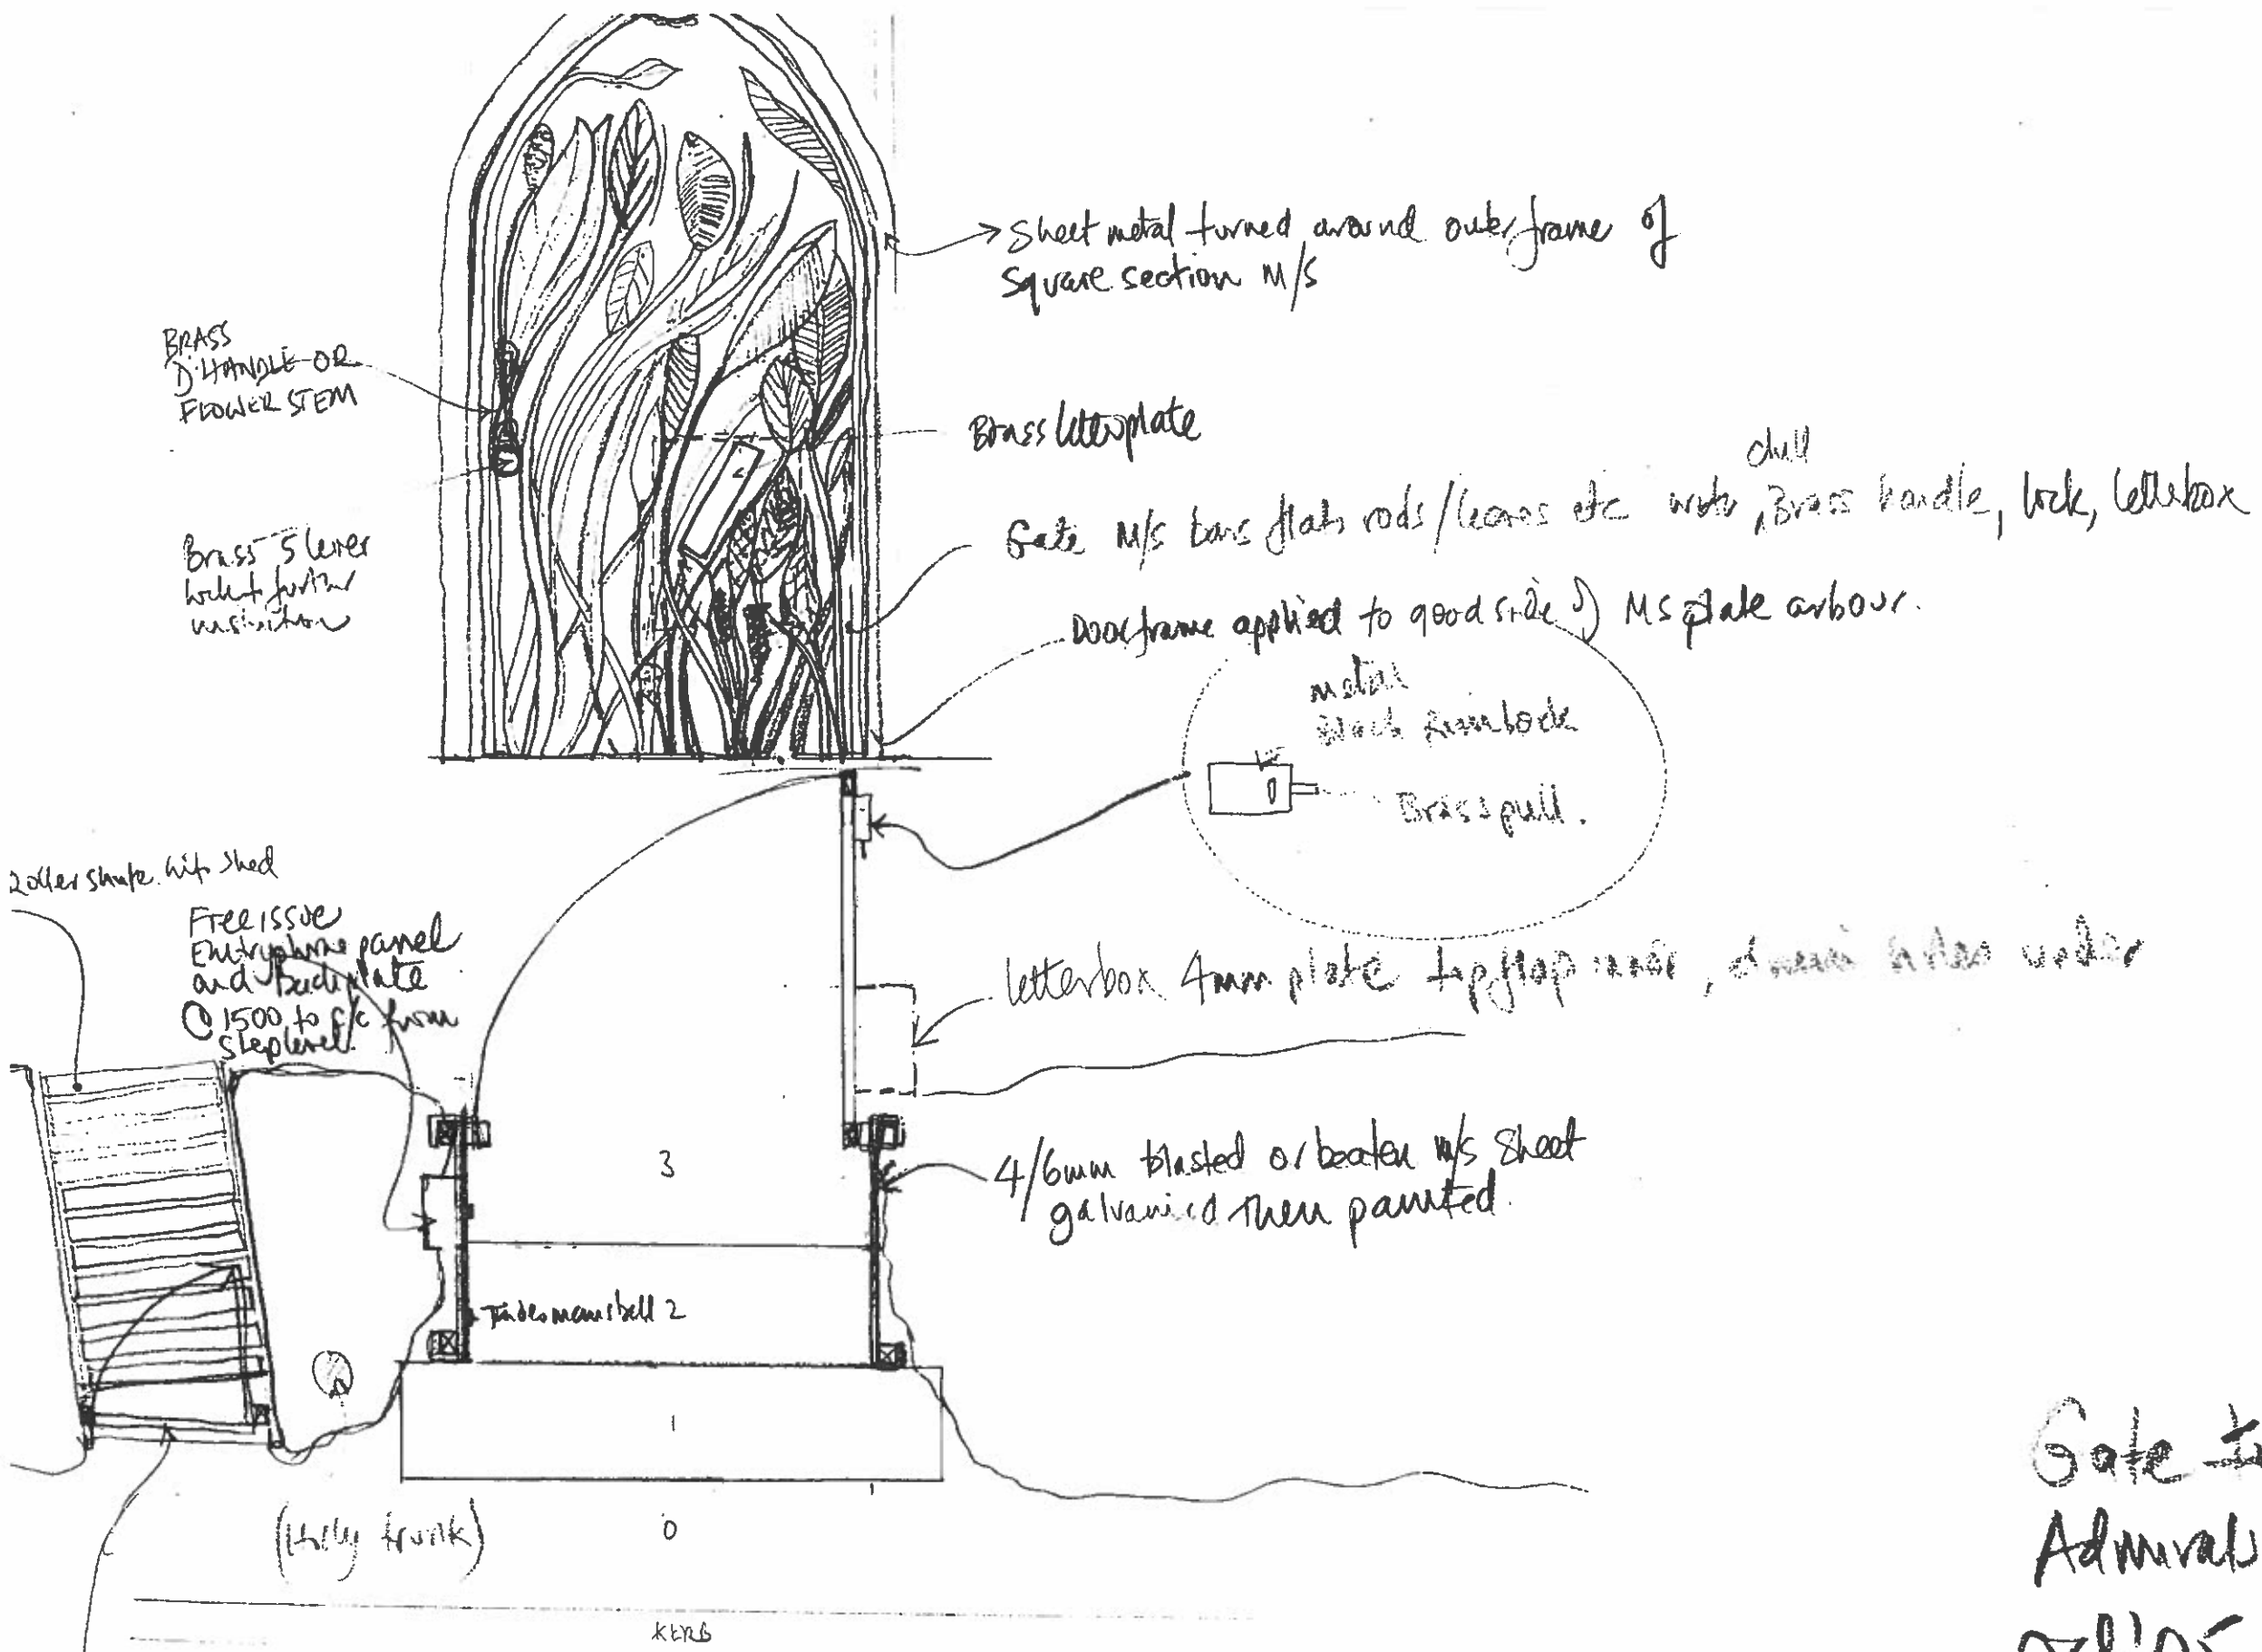 Sheet metal turned around outer frame of
square section M/S
BRASS
D'HANDLE OR
FLOWER STEM
Brass letterplate
dull
Gate M/S bars flats rods/leaves etc with Brass handle, lock, letterbox
Brass 5 lever
Doorframe applied to good side of MS plate arbour.
metal
Black Rimlock
Brass pull.
Roller shute. shed
Free issue
Entryphone panel
and Backplate
@ 1500 to c/c from
step level.
letterbox 4mm plate under
3
4/6mm blasted or beaten m/s sheet
galvanised then painted.
Tradesmans bell 2
1
(Holly trunk)
0
KERB
Gate to
Admirals